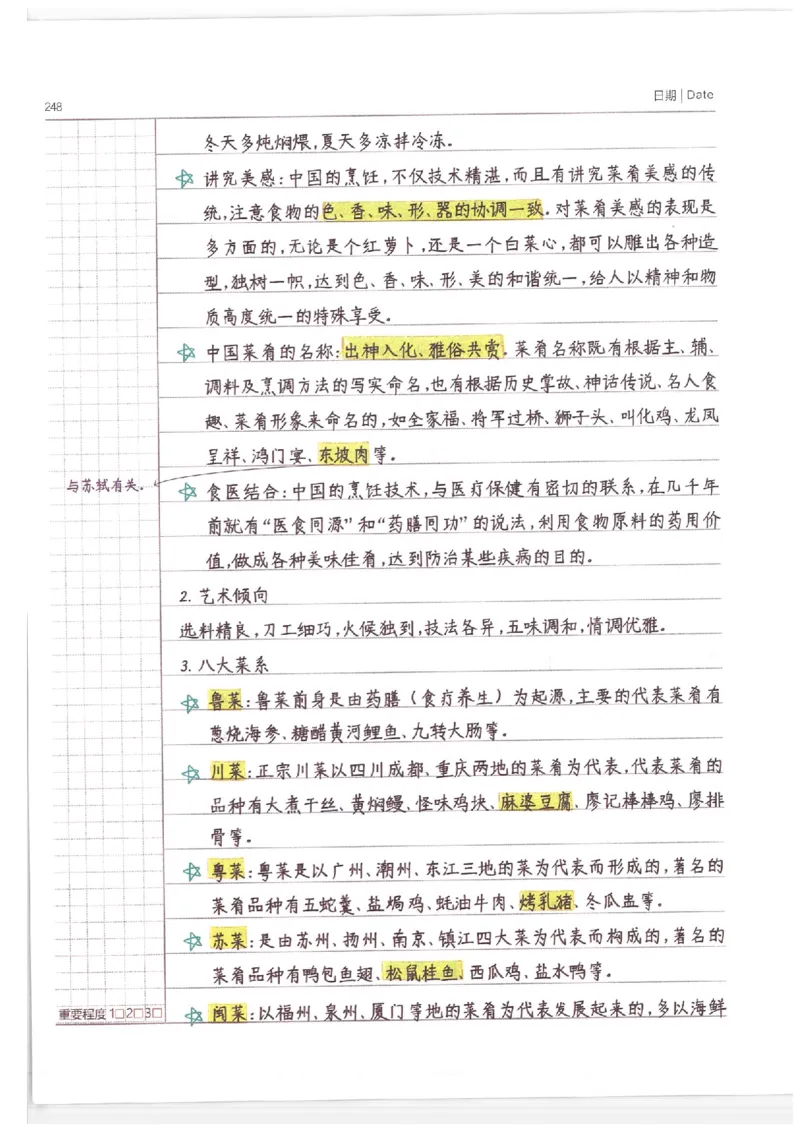 248
日期 | Date
冬天多炖焖煨,夏天多凉拌冷冻。
讲究美感:中国的烹饪,不仅技术精湛,而且有讲究菜肴美感的传
统,注意食物的色、香、味、形、器的协调一致。对菜肴美感的表现是
多方面的,无论是个红萝卜,还是一个白菜心,都可以雕出各种造
型,独树一帜,达到色、香、味、形、美的和谐统一,给人以精神和物
质高度统一的特殊享受。
中国菜肴的名称:出神入化、雅俗共赏。菜肴名称既有根据主、辅、
调料及烹调方法的写实命名,也有根据历史掌故、神话传说、名人食
趣、菜肴形象来命名的,如全家福、将军过桥、狮子头、叫化鸡、龙凤
呈祥、鸿门宴、东坡肉等。
与苏轼有关。
食医结合:中国的烹饪技术,与医疗保健有密切的联系,在几千年
前就有“医食同源”和“药膳同功”的说法,利用食物原料的药用价
值,做成各种美味佳肴,达到防治某些疾病的目的。
2. 艺术倾向
选料精良,刀工细巧,火候独到,技法各异,五味调和,情调优雅。
3. 八大菜系
鲁菜:鲁菜前身是由药膳(食疗养生)为起源,主要的代表菜肴有
葱烧海参、糖醋黄河鲤鱼、九转大肠等。
川菜:正宗川菜以四川成都、重庆两地的菜肴为代表,代表菜肴的
品种有大煮干丝、黄焖鳗、怪味鸡块、麻婆豆腐、廖记棒棒鸡、廖排
骨等。
粤菜:粤菜是以广州、潮州、东江三地的菜为代表而形成的,著名的
菜肴品种有五蛇羹、盐焗鸡、蚝油牛肉、烤乳猪、冬瓜盅等。
苏菜:是由苏州、扬州、南京、镇江四大菜为代表而构成的,著名的
菜肴品种有鸭包鱼翅、松鼠桂鱼、西瓜鸡、盐水鸭等。
闽菜:以福州、泉州、厦门等地的菜肴为代表发展起来的,多以海鲜
重要程度 1□2□3□